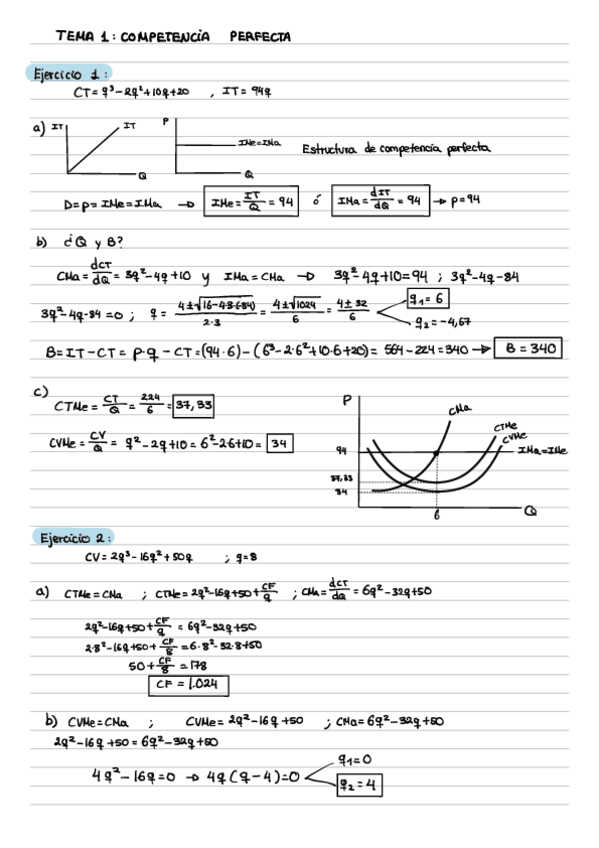 TEMA 1: COMPETENCIA PERFECTA
Ejercicio 1:
CT = q³ - 2q² + 10q + 20 , IT = 94q
a) IT IT Q P IMe = IMa Q Estructura de competencia perfecta
D = p = IMe = IMa → IMe = IT/Q = 94 ó IMa = dIT/dQ = 94 → p = 94
b) ¿Q y B?
CMa = dCT/dQ = 3q² - 4q + 10 y IMa = CMa → 3q² - 4q + 10 = 94 ; 3q² - 4q - 84
3q² - 4q - 84 = 0 ; q = 4 ± √(16 - 4·3·(-84)) / 2·3 = 4 ± √1024 / 6 = 4 ± 32 / 6 q₁ = 6
q₂ = -4,67
B = IT - CT = p·q - CT = (94·6) - (6³ - 2·6² + 10·6 + 20) = 564 - 224 = 340 → B = 340
c)
CTMe = CT/Q = 224/6 = 37,33
CVMe = CV/Q = q² - 2q + 10 = 6² - 2·6 + 10 = 34
P
CMa
CTMe
CVMe
94 IMa = IMe
37,33
34
6 Q
Ejercicio 2:
CV = 2q³ - 16q² + 50q ; q = 8
a) CTMe = CMa ; CTMe = 2q² - 16q + 50 + CF/q ; CMa = dCT/dQ = 6q² - 32q + 50
2q² - 16q + 50 + CF/q = 6q² - 32q + 50
2·8² - 16q + 50 + CF/8 = 6·8² - 32·8 + 50
50 + CF/8 = 178
CF = 1.024
b) CVMe = CMa ; CVMe = 2q² - 16q + 50 ; CMa = 6q² - 32q + 50
2q² - 16q + 50 = 6q² - 32q + 50
4q² - 16q = 0 → 4q (q - 4) = 0 q₁ = 0
q₂ = 4